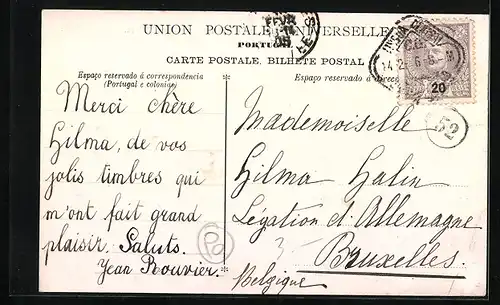 UNION POSTALE UNIVERSELLE
PORTUGAL
CARTE POSTALE, BILHETE POSTAL
Espaço reservado á correspondencia
(Portugal e colonias)
Espaço reservado a direcção
Merci chère
Hilma, de vos
jolis timbres qui
m'ont fait grand
plaisir. Saluts.
Jean Rouvier.
Mademoiselle
Hilma Halin
Légation d'Allemagne
Bruxelles.
Belgique
20
52
FEVR